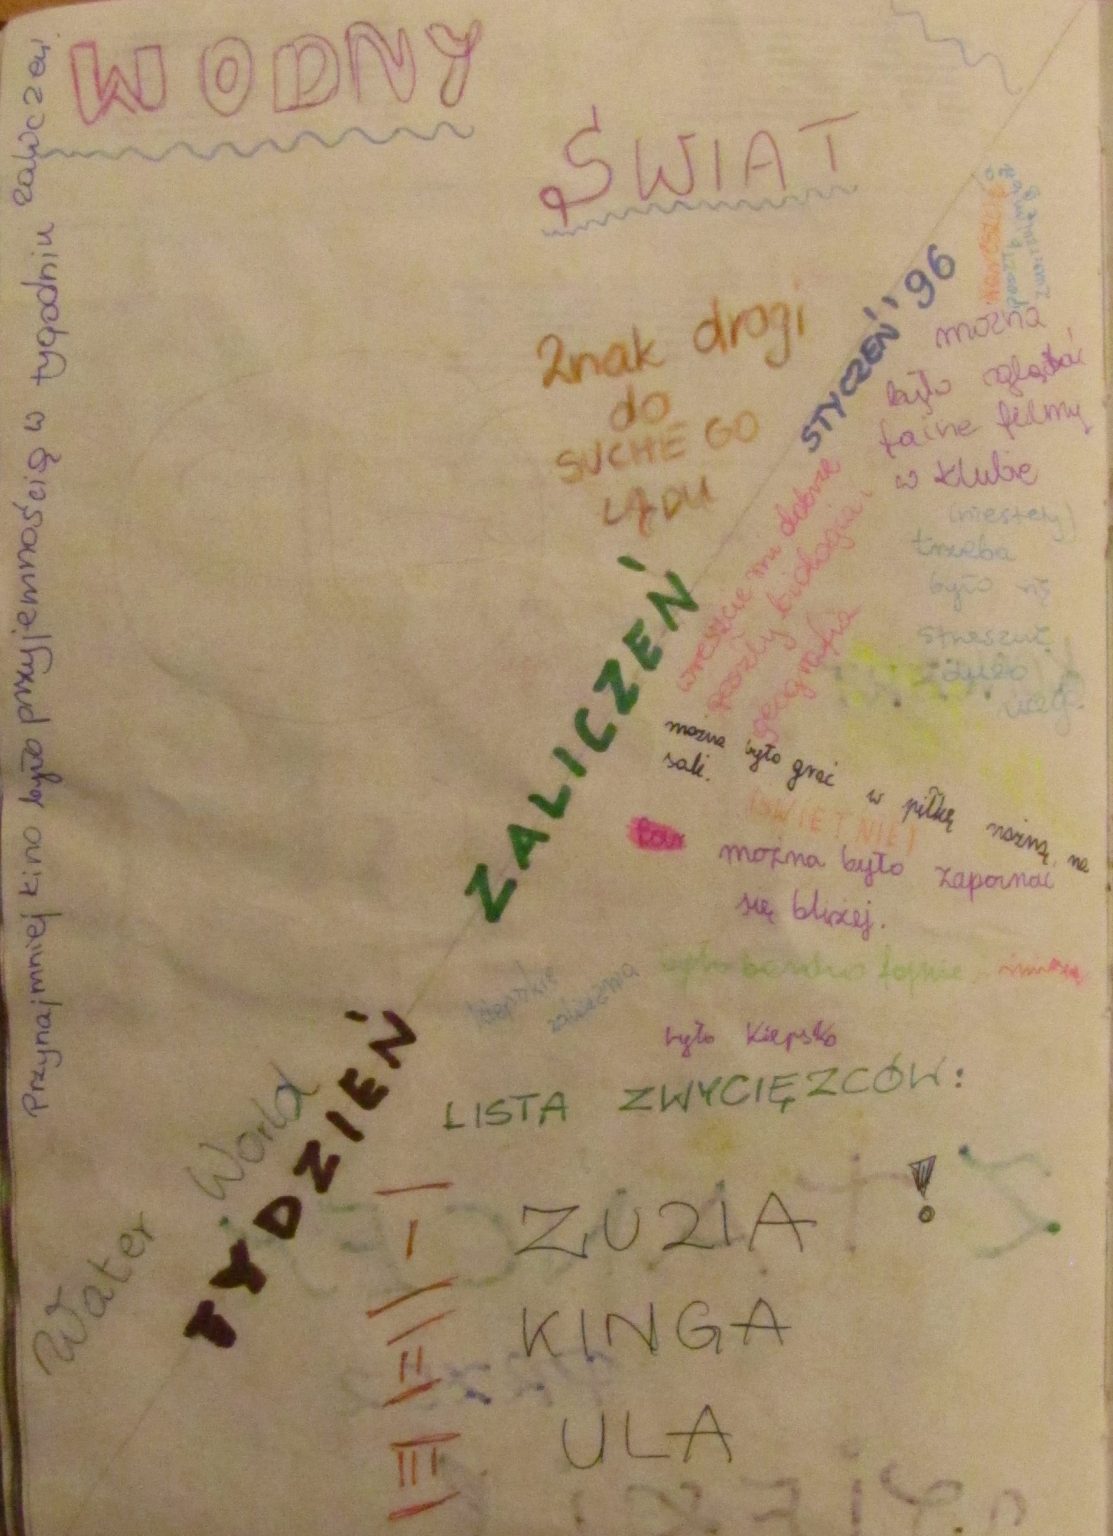 WODNY
ŚWIAT
Przynajmniej kino było przyjemnością w tygodniu zaliczeń.
Znak drogi
do
SUCHEGO
LĄDU
STYCZEŃ '96
można
było oglądać
fajne filmy
w klubie
(niestety)
trzeba
było się
streszczać
z dużo
wreszcie mi dobrze
poszły biologia i
geografia
ZALICZEŃ
można było grać w piłkę nożną na
sali.
(ŚWIETNIE)
można było zapoznać
się bliżej.
było bardzo fajnie
było kiepsko
TYDZIEŃ
Water World
LISTA ZWYCIĘZCÓW:
I ZUZIA !
II KINGA
III ULA